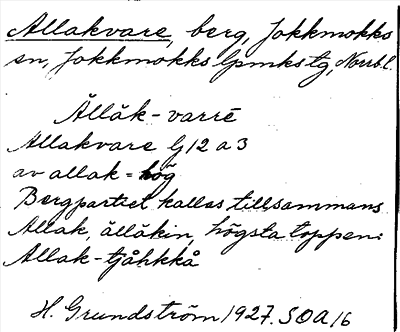 Allakvare, berg, Jokkmokks
sn, Jokkmokks lpmks tg, Norrb l.
Ällāk-varrē
Allakvare G12 a3
av allak = hög
Bergpartiet kallas tillsammans
Allak, ällākin, högsta toppen:
Allak-tjåhkkå
H. Grundström 1927. SOA 16